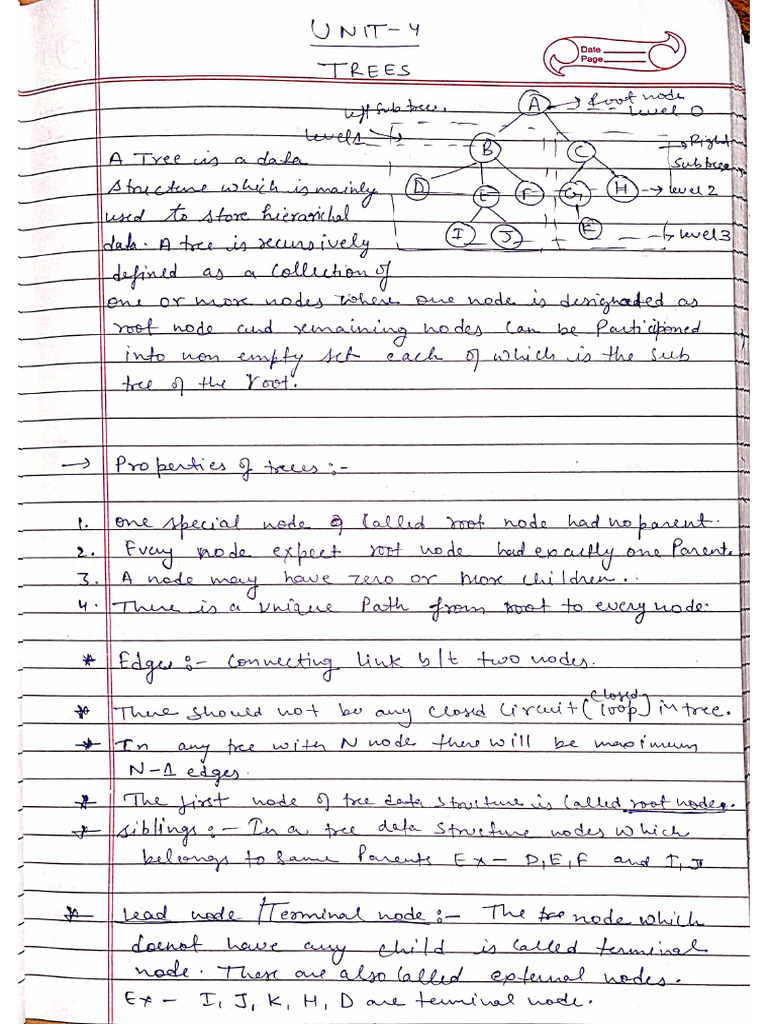 UNIT-4
TREES
Date
Page
A Root node
Level 0
left Subtree.
Level 1
B C
Right
Subtree
D E F G H Level 2
I J E Level 3
A Tree is a data
Structure which is mainly
used to store hierarichal
data. A tree is recursively
defined as a collection of
one or more nodes where one node is designated as
root node and remaining nodes can be Particioned
into non empty set each of which is the sub
tree of the root.
→ Properties of trees :-
1. One special node called root node had no parent.
2. Every node expect root node had exactly one Parent.
3. A node may have zero or more children.
4. There is a unique Path from root to every node.
* Edges :- Connecting link b/t two nodes.
closed
* There should not be any closed Circuit (loop) in tree.
* In any tree with N node there will be maximum
N-1 edges.
* The first node of tree data structure is called root node.
* Siblings :- In a tree data structure nodes which
belongs to same Parents Ex - D, E, F and I, J
* Lead node / Terminal node :- The node which
doenot have any child is called terminal
node. These are also called external nodes.
Ex - I, J, K, H, D are terminal node.